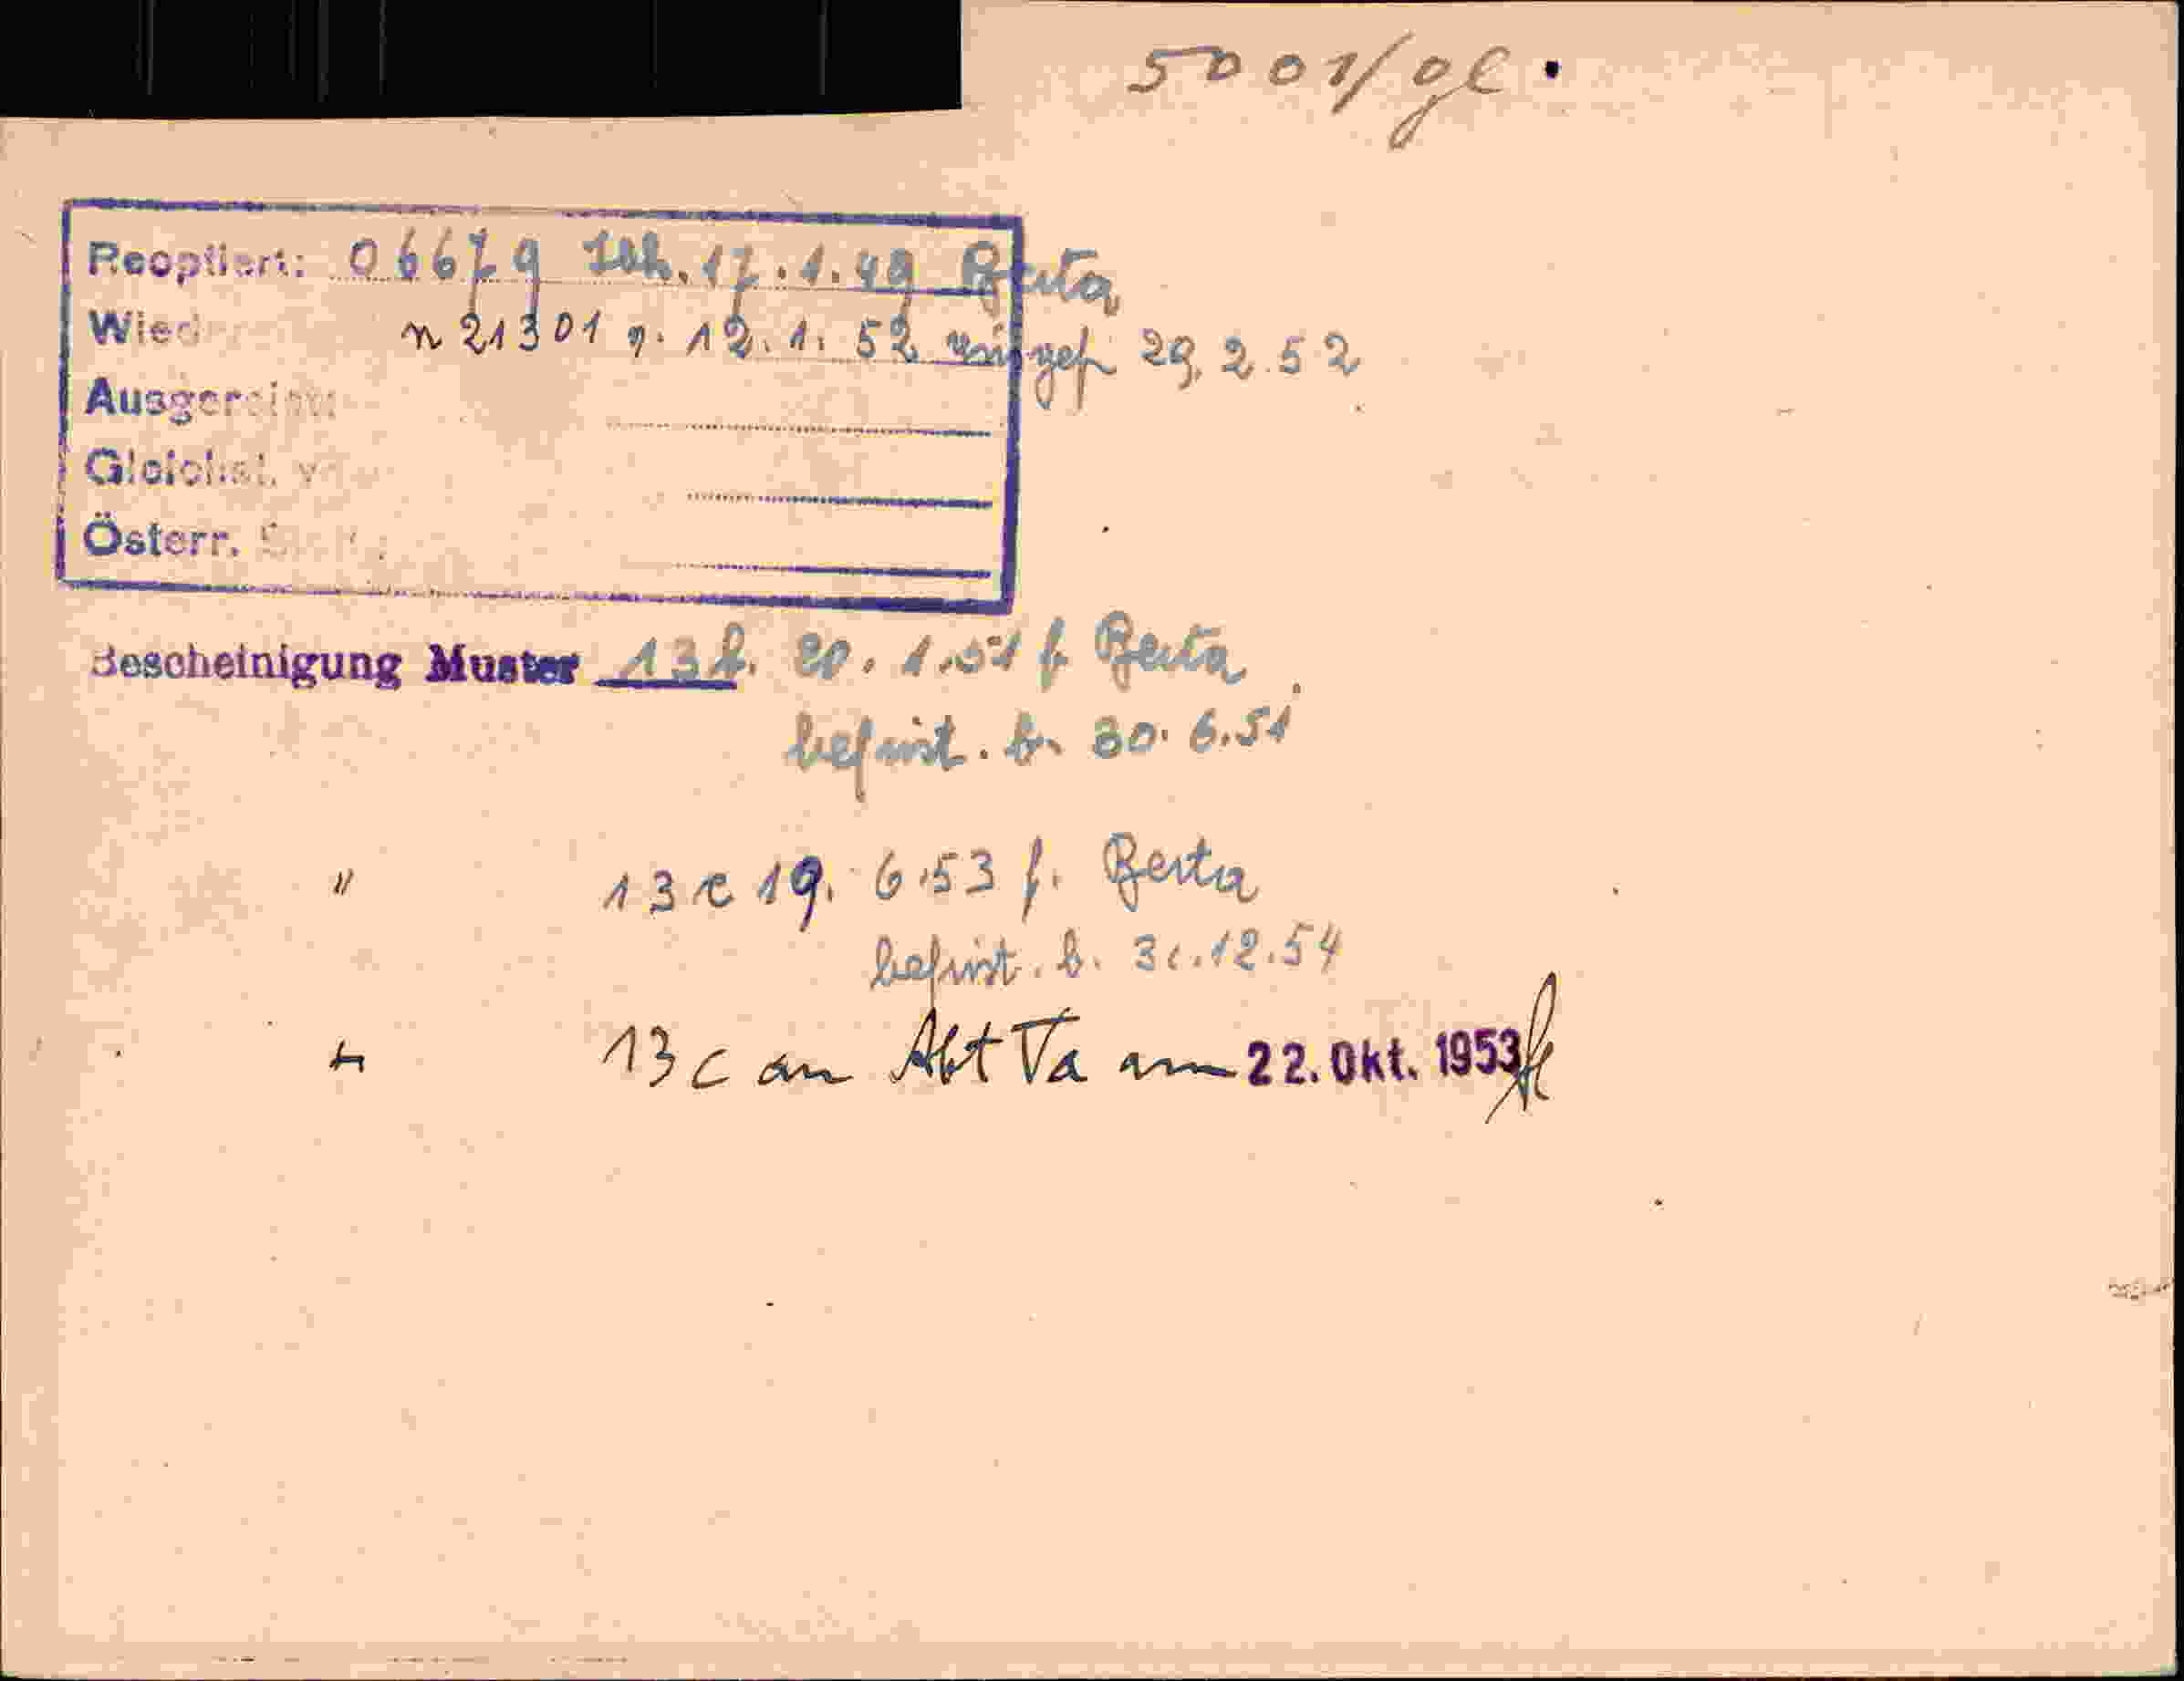 5001/gl.
Reoptiert: 06679 Joh. 17.1.49 Berta
Wied n 21301 v. 12.1.52 eingef 29.2.52
Ausgereist:
Gleichst. v
Österr.
Bescheinigung Muster 13b. 20.1.51 f. Berta
befrist. b. 30.6.51
" 13c 19.6.53 f. Berta
befrist. b. 31.12.54
" 13c an Abt Va am 22. Okt. 1953